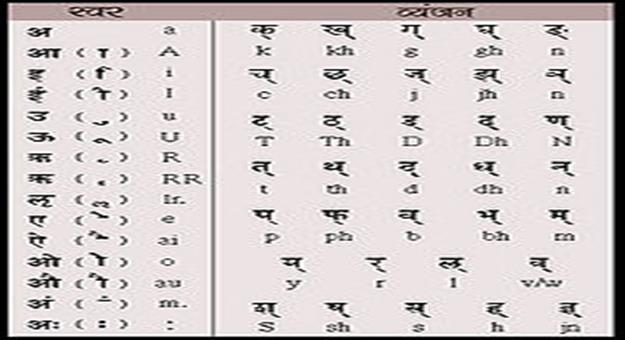 स्वर
अ a
आ ( ा ) A
इ ( ि ) i
ई ( ी ) I
उ ( ु ) u
ऊ ( ू ) U
ऋ ( ृ ) R
ऋ RR
लृ lr.
ए ( े ) e
ऐ ( ै ) ai
ओ ( ो ) o
औ ( ौ ) au
अं ( ं ) m.
अः ( : ) :
व्यंजन
क् ख् ग् घ् ङ्
k kh g gh n
च् छ् ज् झ् ञ्
c ch j jh n
ट् ठ् ड् ढ् ण्
T Th D Dh N
त् थ् द् ध् न्
t th d dh n
प् फ् ब् भ् म्
p ph b bh m
य् र् ल् व्
y r l v/w
श् ष् स् ह् ज्ञ्
S sh s h jn